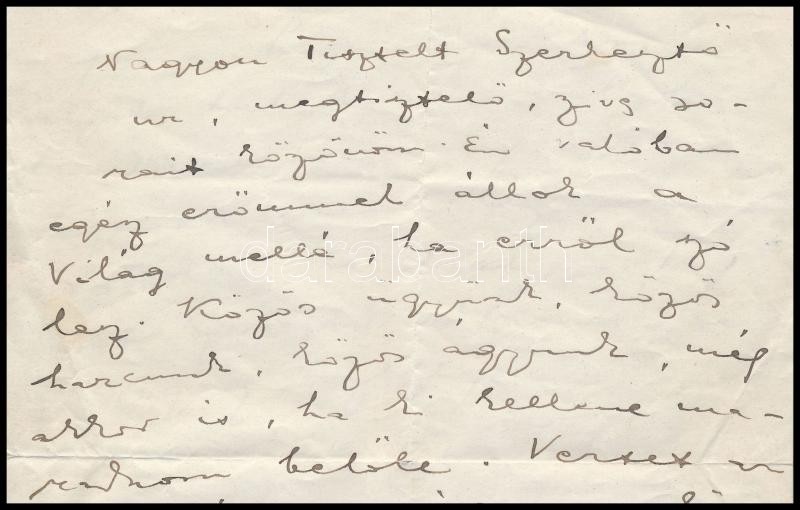 Nagyon Tisztelt Szerkesztő
ur, megtisztelő, szives so-
rait köszönöm. Én valóban
egész erőmmel állok a
Világ mellé, ha erről szó
lesz. Közös ügyünk, közös
harcunk, közös ágyunk, még
akkor is, ha ki kellene ma-
radnom belőle. Verset
darabanth